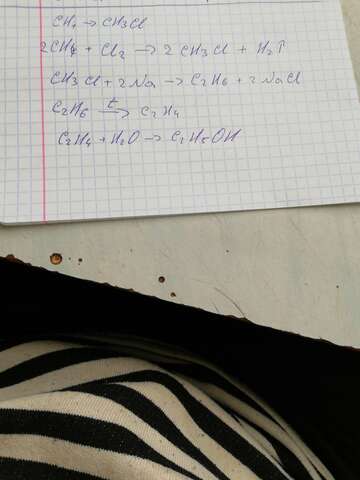 CH₄ → CH₃Cl
2CH₄ + Cl₂ → 2 CH₃Cl + H₂↑
CH₃Cl + 2Na → C₂H₆ + 2NaCl
C₂H₆ —t→ C₂H₄
C₂H₄ + H₂O → C₂H₅OH